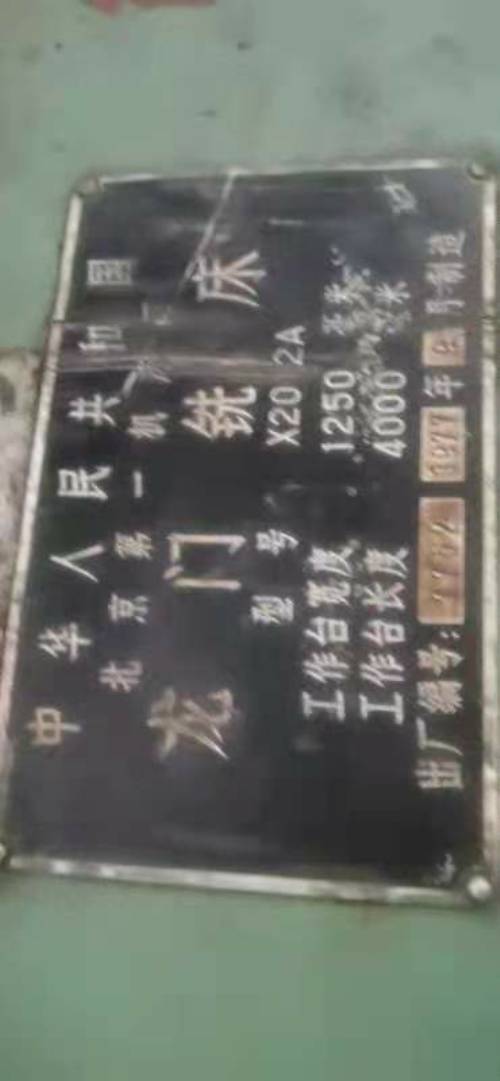 中华人民共和国
北京第一机床厂
龙门铣床
型号 X2012A
工作台宽度 1250 毫米
工作台长度 4000 毫米
出厂编号: 1977年 月制造